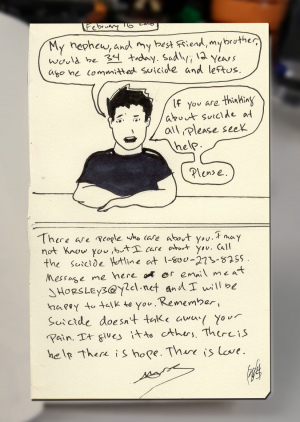 February 16
My nephew, and my best friend, my brother,
would be 34 today. Sadly, 12 years
ago he committed suicide and left us.
If you are thinking
about suicide at
all, please seek
help.
Please.
There are people who care about you. I may
not know you, but I care about you. Call
the suicide Hotline at 1-800-273-8255.
Message me here or email me at
JHORSLEY3@y2cl.net and I will be
happy to talk to you. Remember,
Suicide doesn't take away your
pain. It gives it to others. There is
help. There is hope. There is Love.